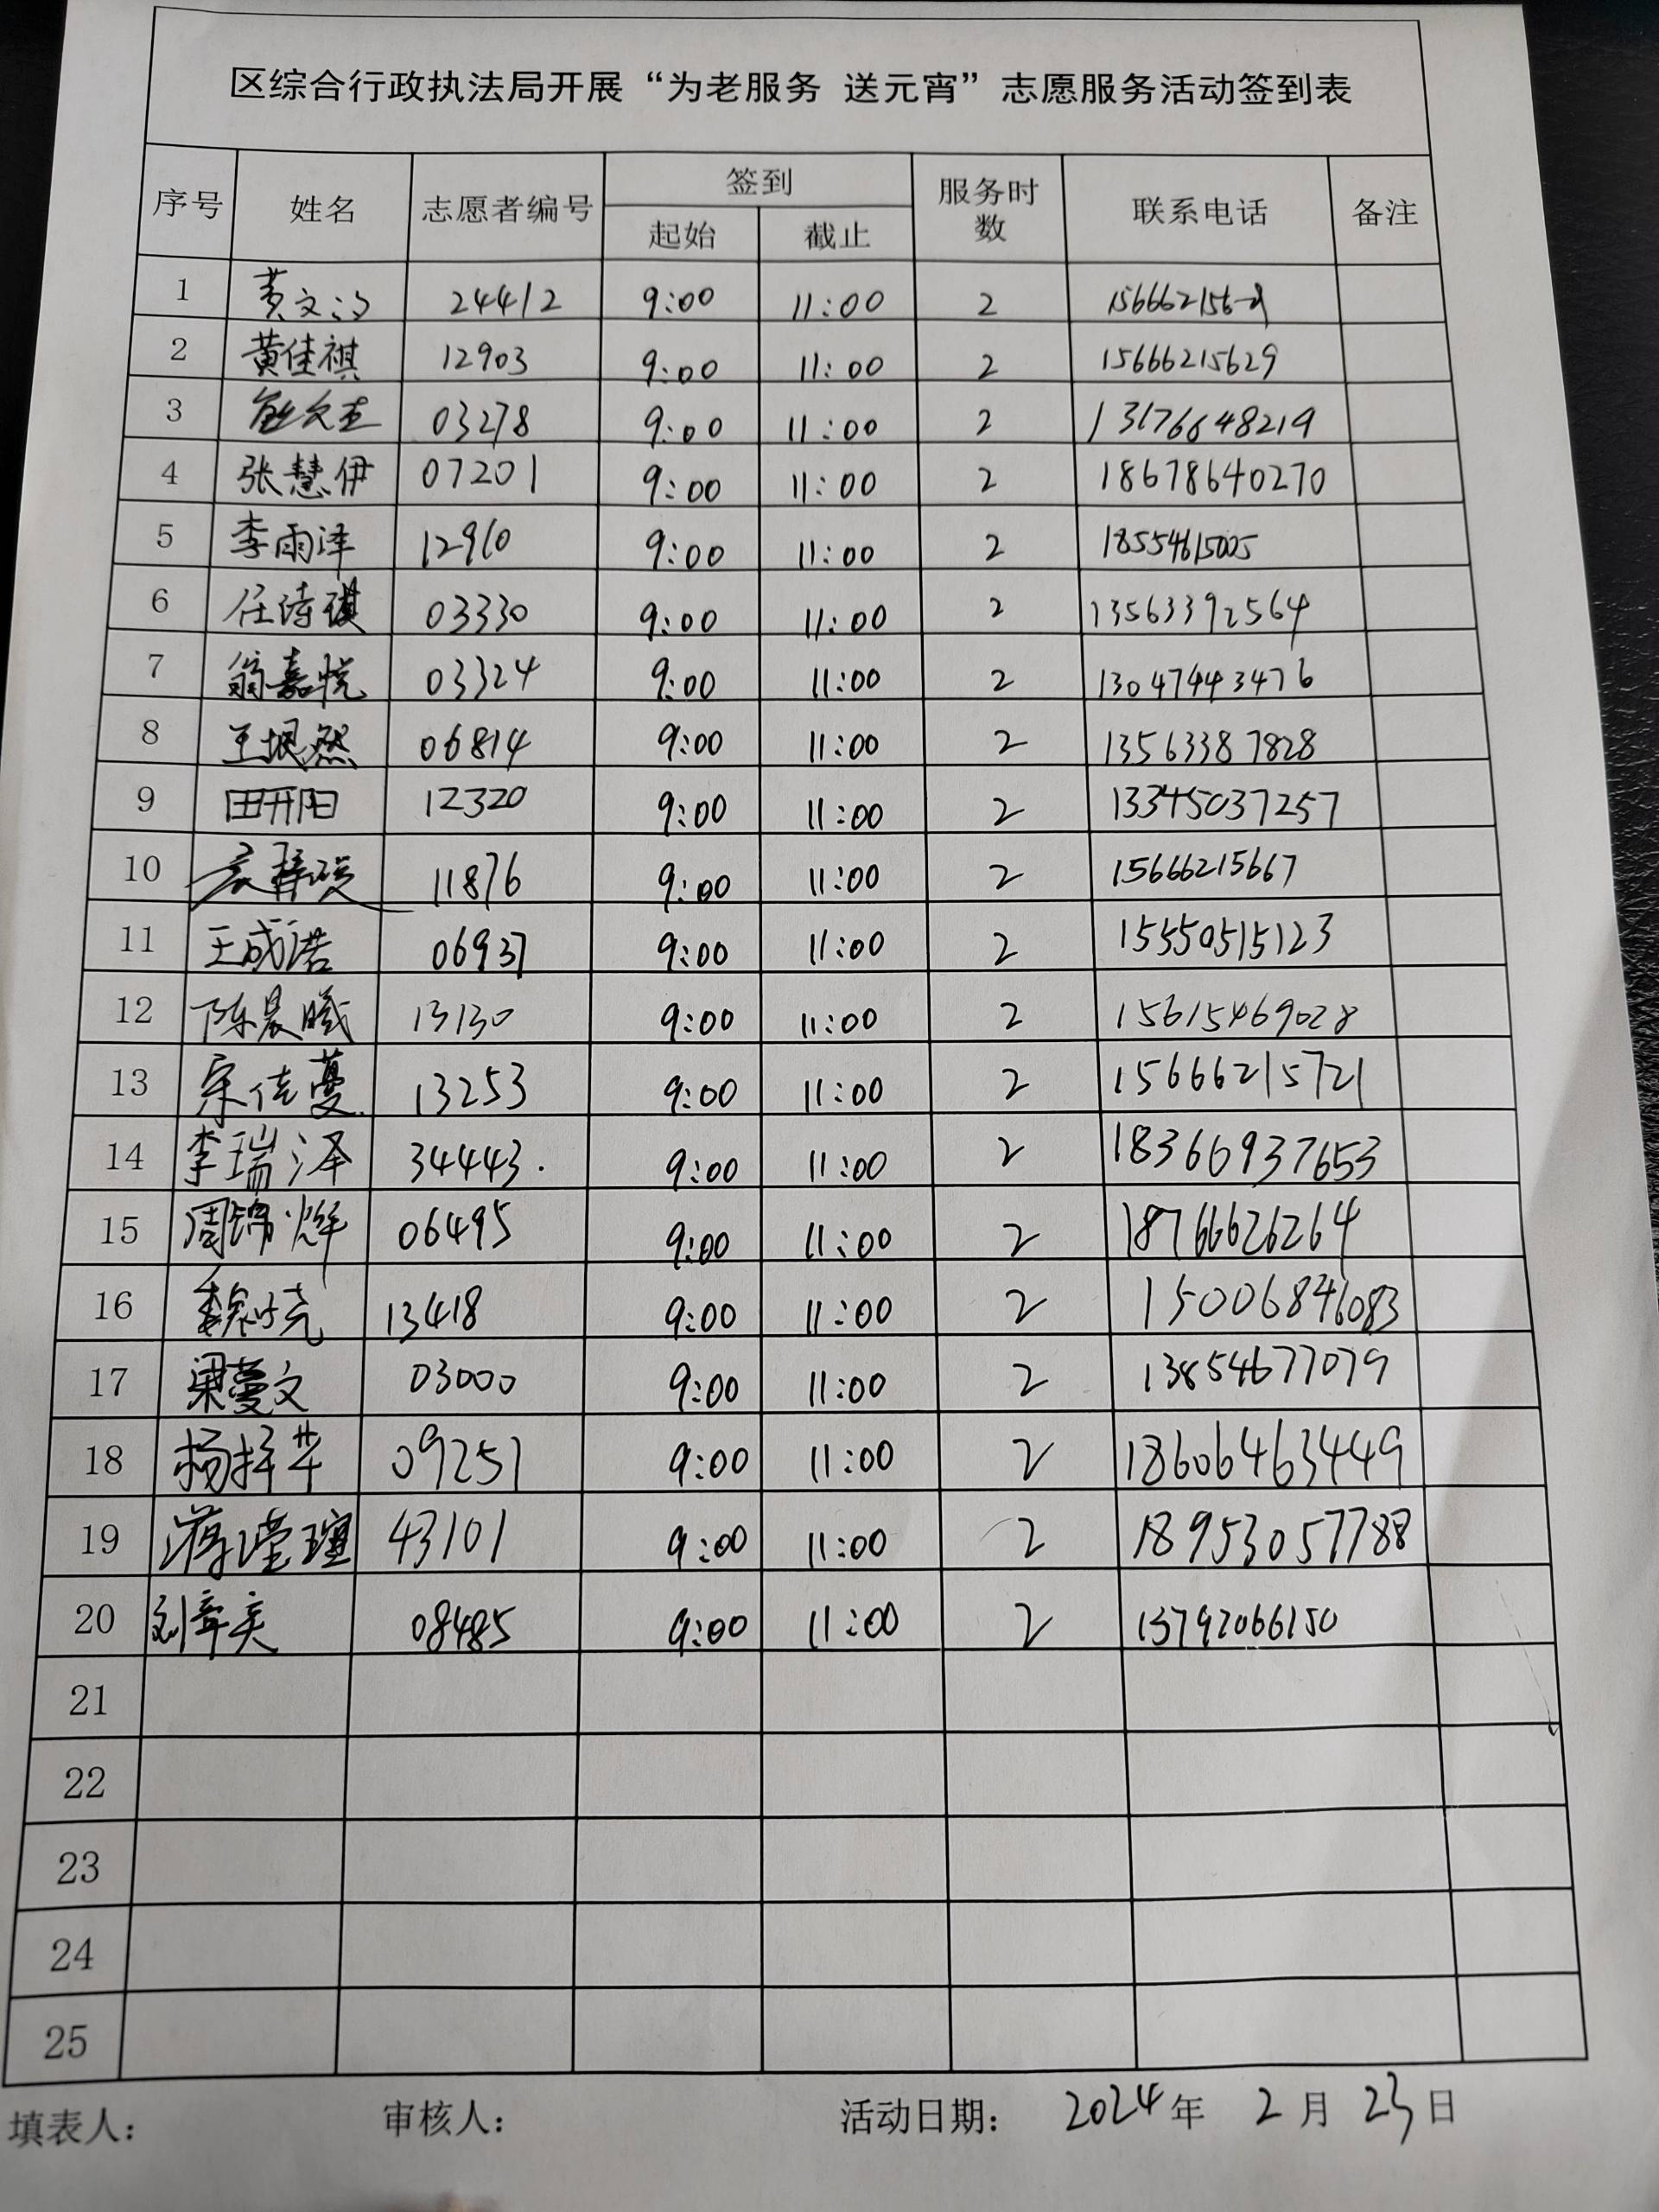 区综合行政执法局开展“为老服务 送元宵”志愿服务活动签到表
序号 姓名 志愿者编号 签到 服务时数 联系电话 备注
起始 截止
1 黄文 24412 9:00 11:00 2
2 黄佳祺 12903 9:00 11:00 2 15666215629
3 03278 9:00 11:00 2 13176648219
4 张慧伊 07201 9:00 11:00 2 18678640270
5 李雨泽 12910 9:00 11:00 2 18554615005
6 任诗琪 03330 9:00 11:00 2 13563392564
7 翁嘉悦 03324 9:00 11:00 2 13047443476
8 王垠然 06814 9:00 11:00 2 13563387828
9 田开阳 12320 9:00 11:00 2 13345037257
10 11876 9:00 11:00 2 15666215667
11 王成诺 06937 9:00 11:00 2 15550515123
12 陈晨曦 13130 9:00 11:00 2 15615469028
13 宋佳蔓 13253 9:00 11:00 2 15666215721
14 李瑞泽 34443. 9:00 11:00 2 18366937653
15 周锦烨 06495 9:00 11:00 2 18766626264
16 13418 9:00 11:00 2 15006846083
17 梁蔓文 03000 9:00 11:00 2 13854677079
18 杨梓华 09251 9:00 11:00 2 18606463449
19 蒋滢瑄 43101 9:00 11:00 2 18953057788
20 刘奕 08485 9:00 11:00 2 13792066150
21
22
23
24
25
填表人： 审核人： 活动日期： 2024年 2月 23日